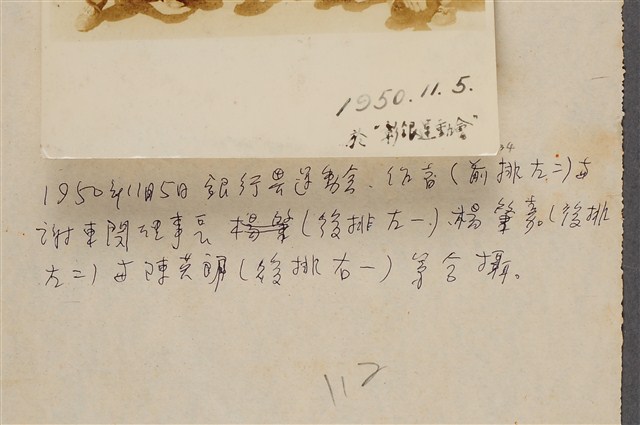 1950.11.5.
於"彰銀運動會"
1950年11月5日 銀行界運動会、作者(前排左二)与
謝東閔理事長 楊肇(後排左一)、楊肇嘉(後排
左二)与陳英(後排右一)等合攝。
112